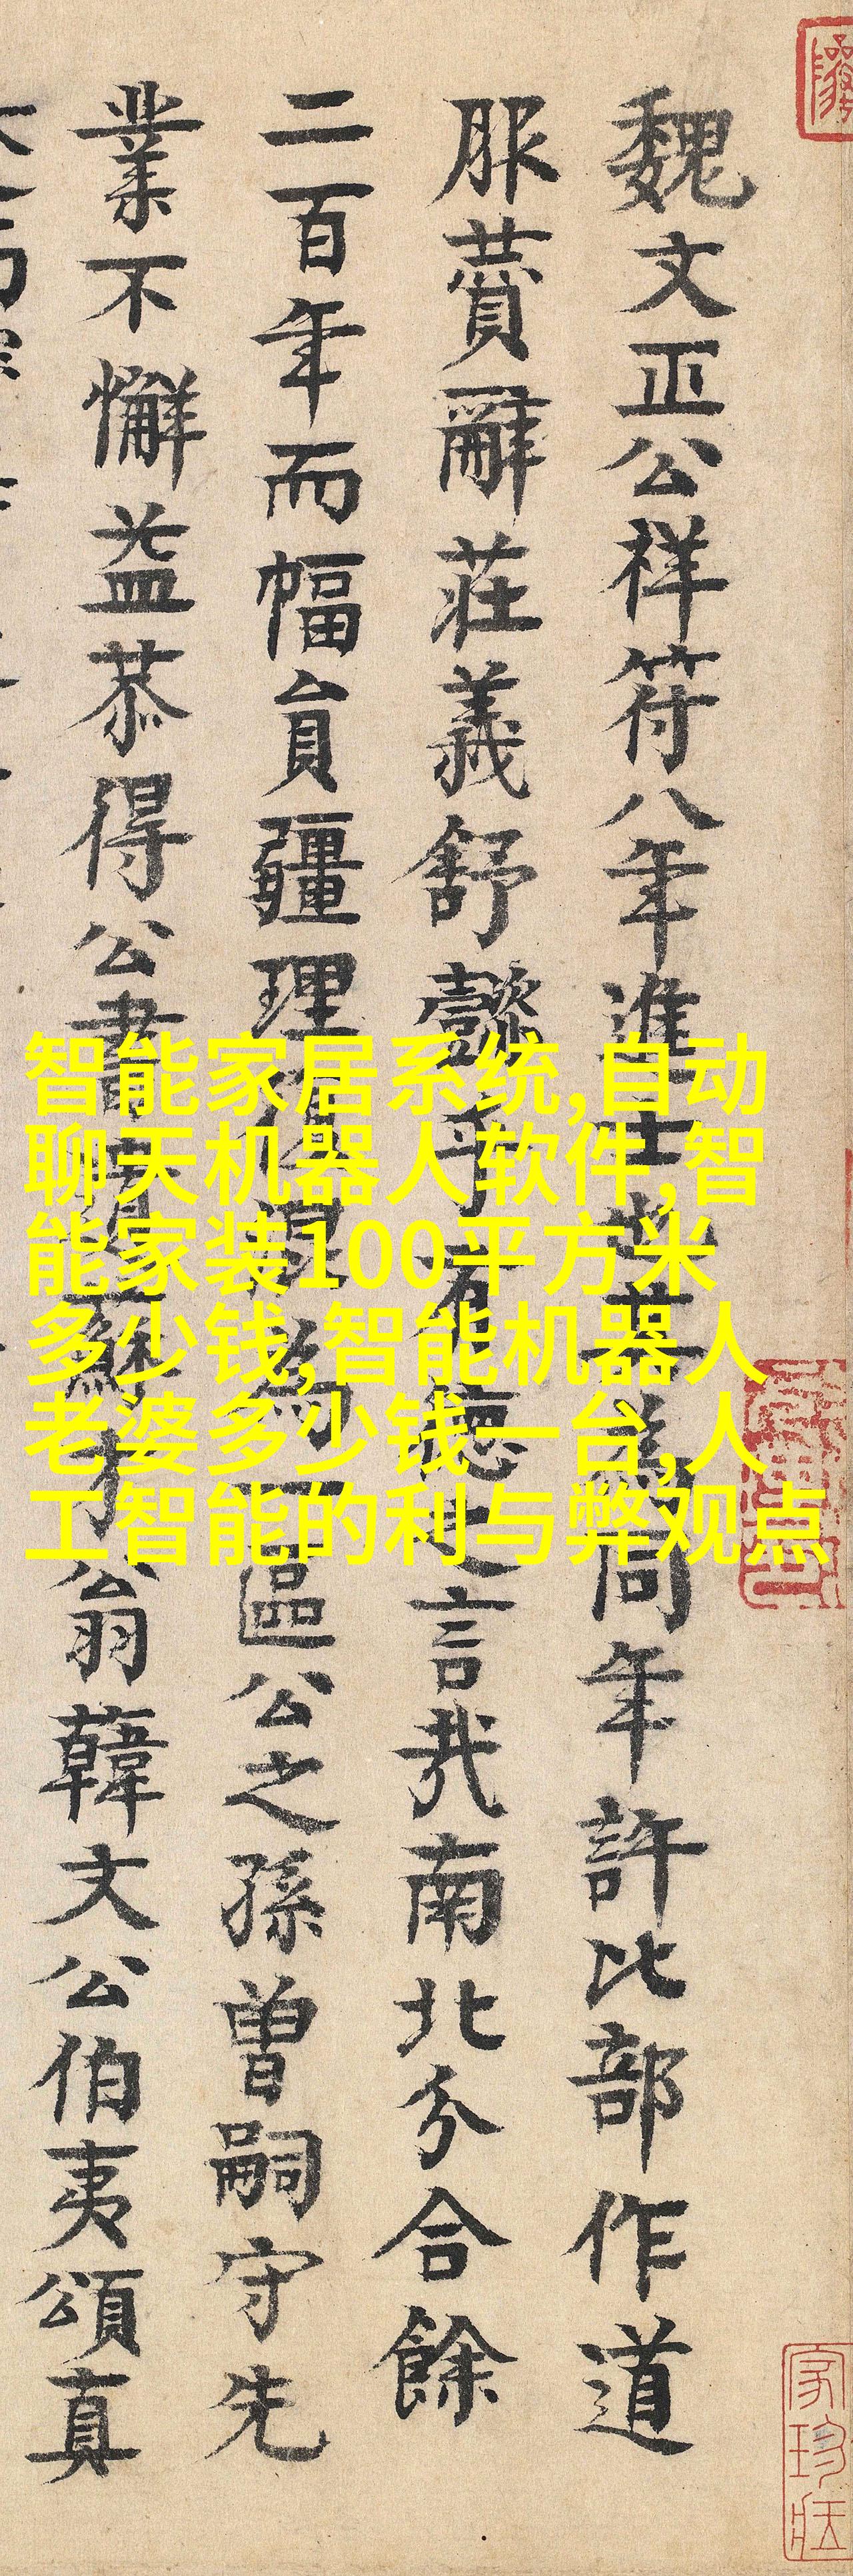 魏文正公祥符八年進士噵士為同年許比部作道
服蕒辭莊義舒懿乎有德之言㢤南北分合餘
二百年而幅貟疆理得混為一區公之孫曾嗣守先
業不懈益恭得公書蘇才翁韓文公伯夷頌真
智能家居系统,自动
聊天机器人软件,智
能家装100平方米
多少钱,智能机器人
老婆多少钱一台,人
工智能的利与弊观点
家珍藏